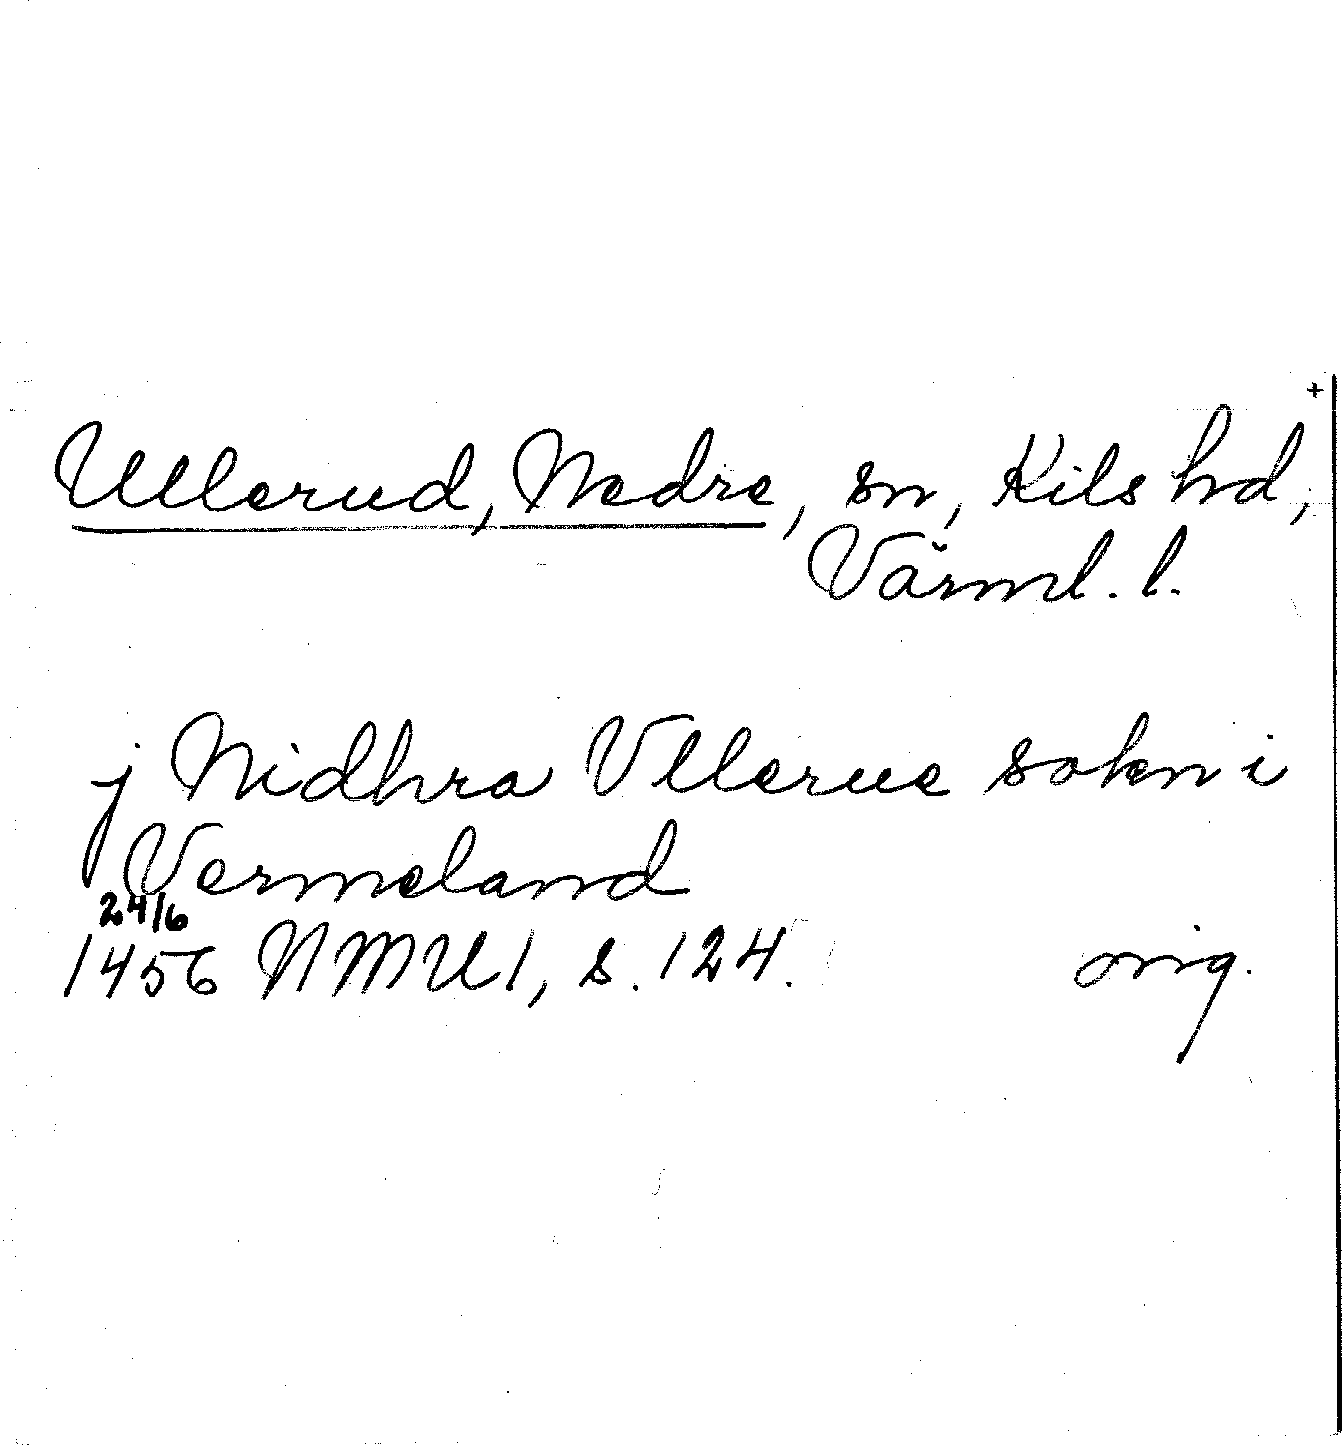 +
Ullerud, Nedre, sn, Kils hd,
Värml. l.
j Nidhra Vllerue sokn i
Vermeland
24/6
1456 NMU 1, s. 124. orig.